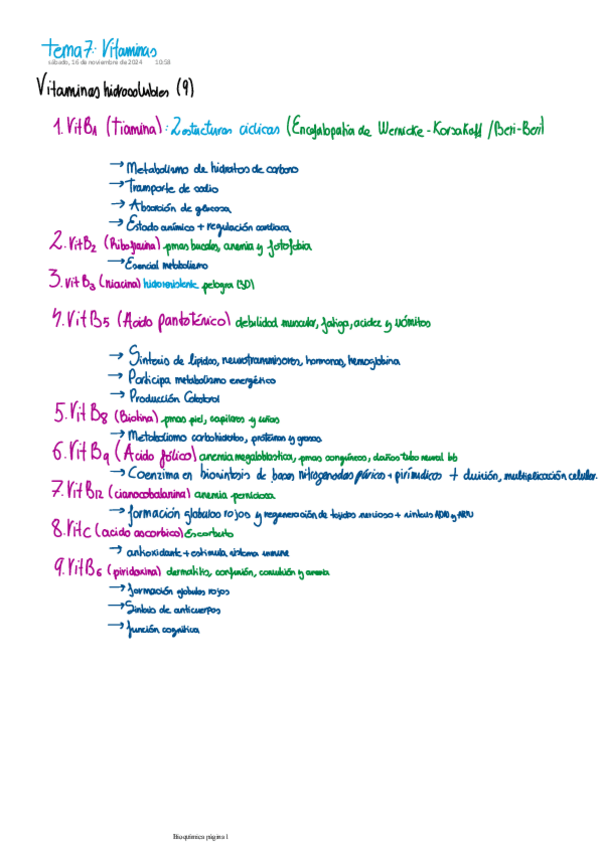 tema 7: Vitaminas
sábado, 16 de noviembre de 2024 10:58
Vitaminas hidrosolubles (9)
1. Vit B1 (Tiamina): 2 estucturas cíclicas (Encefalopatía de Wernicke-Korsakoff / Beri-Beri)
→ Metabolismo de hidratos de carbono
→ Transporte de sodio
→ Absorción de glucosa
→ Estado anímico + regulación cardiaca
2. Vit B2 (Riboflavina) pmas bucales, anemia y fotofobia
→ Esencial metabolismo
3. Vit B3 (niacina) hidroresistente pelagra (3D)
4. Vit B5 (Ácido pantoténico) debilidad muscular, fatiga, acidez y vómitos
→ Síntesis de lípidos, neurotransmisores, hormonas, hemoglobina
→ Participa metabolismo energético
→ Producción Colesterol
5. Vit B8 (Biotina) pmas piel, capilares y uñas
→ Metabolismo carbohidratos, proteínas y grasas
6. Vit B9 (Ácido fólico) anemia megaloblástica, pmas congénitos, daños tubo neural bb
→ Coenzima en biosíntesis de bases nitrogenadas púricas + pirimídicas + división, multiplicación celular.
7. Vit B12 (cianocobalamina) anemia perniciosa
→ formación glóbulos rojos y regeneración de tejidos nervioso + síntesis ADN y ARN
8. Vit C (acido ascorbico) Escorbuto
→ antioxidante + estimula sistema inmune
9. Vit B6 (piridoxina) dermatitis, confusión, convulsión y anemia
→ formación glóbulos rojos
→ Síntesis de anticuerpos
→ función cognitiva
Bioquímica página 1